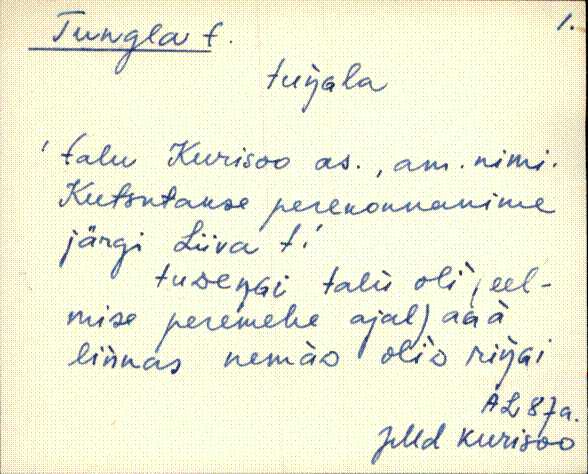 Tungla t.
1.
tuŋ̀gla
' talu Kurisoo as., am. nimi.
Kutsutakse perekonnanime
järgi Liiva t.'
talù oli (eel-
mise peremehe ajal)
linnas nemàò oliò
ÄL 87a.
JMd Kurisoo